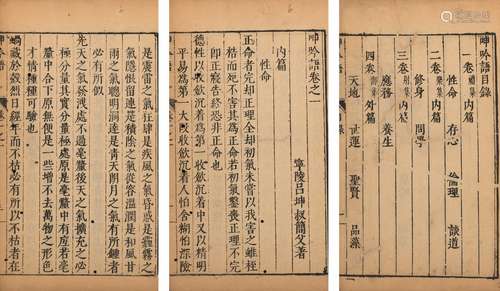 呻吟語目錄
一卷 禮集 內篇
性命 存心 倫理 談道
二卷 樂集 內篇
修身 問學
三卷 射集 內篇
應務 養生
四卷 外篇
天地 世運 聖賢 品藻
呻吟語卷之一
寧陵呂坤叔簡父著
內篇
性命
正命者完却正理全却初氣未嘗以我害之雖桎
梏而死不害其為正命若初氣鑿喪正理不完
即正寢告終恐非正命也
德性以收歛沉着為第一收歛沉着中又以精明
平易為第一大段收歛沉着人怕含糊怕深險
是震雷之氣狂肆是疾風之氣昏惑是霾霧之
氣隱恨留連是積陰之氣從容溫潤是和風甘
雨之氣聰明洞達是青天朗月之氣有所鍾者
必有所似
先天之氣發洩處不過毫釐後天之氣擴充之必
極分量其實分量極處原是毫釐中有底若毫
釐中合下原無便是一些增不去萬物之形色
才情種種可驗也
蝸藏於殼烈日經年而不枯必有所以不枯者在